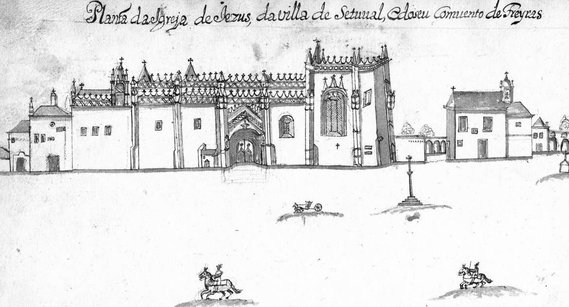 Planta da Igreja de Jezus, da villa de Setuual, e do seu Comuento de Freyras